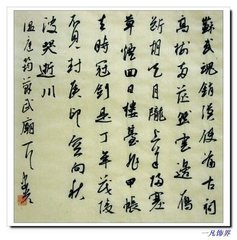 蘇武魂銷漢使前古祠
高樹兩茫然雲邊雁
斷胡天月隴上羊歸塞
草煙回日樓臺非甲帳
去時冠劍是丁年茂陵
不見封侯印空向秋
波哭逝川
溫庭筠蘇武廟
一凡飾界